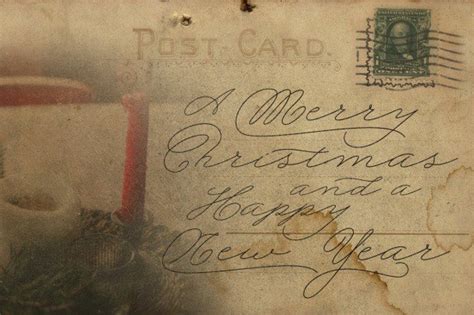 POST CARD.
A Merry
Christmas
and a
Happy
New Year